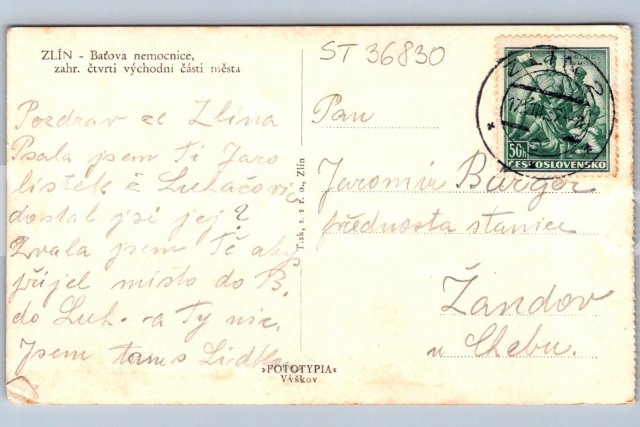 ZLÍN - Baťova nemocnice,
zahr. čtvrti východní části města
ST 36830
Pozdrav ze Zlína
Psala jsem Ti Jaro
lístek z Luhačovic
dostal jsi jej?
Zvala jsem Tě aby
přijel místo do B.
do Luh. a Ty nic.
Jsem tam s Lidkou
Tisk, s. s r. o., Zlín
»FOTOTYPIA«
Vyškov
50h
ČESKOSLOVENSKO
ZLÍN 2
Pan
Jaromír Burger
přednosta stanice
Žandov
u Chebu.